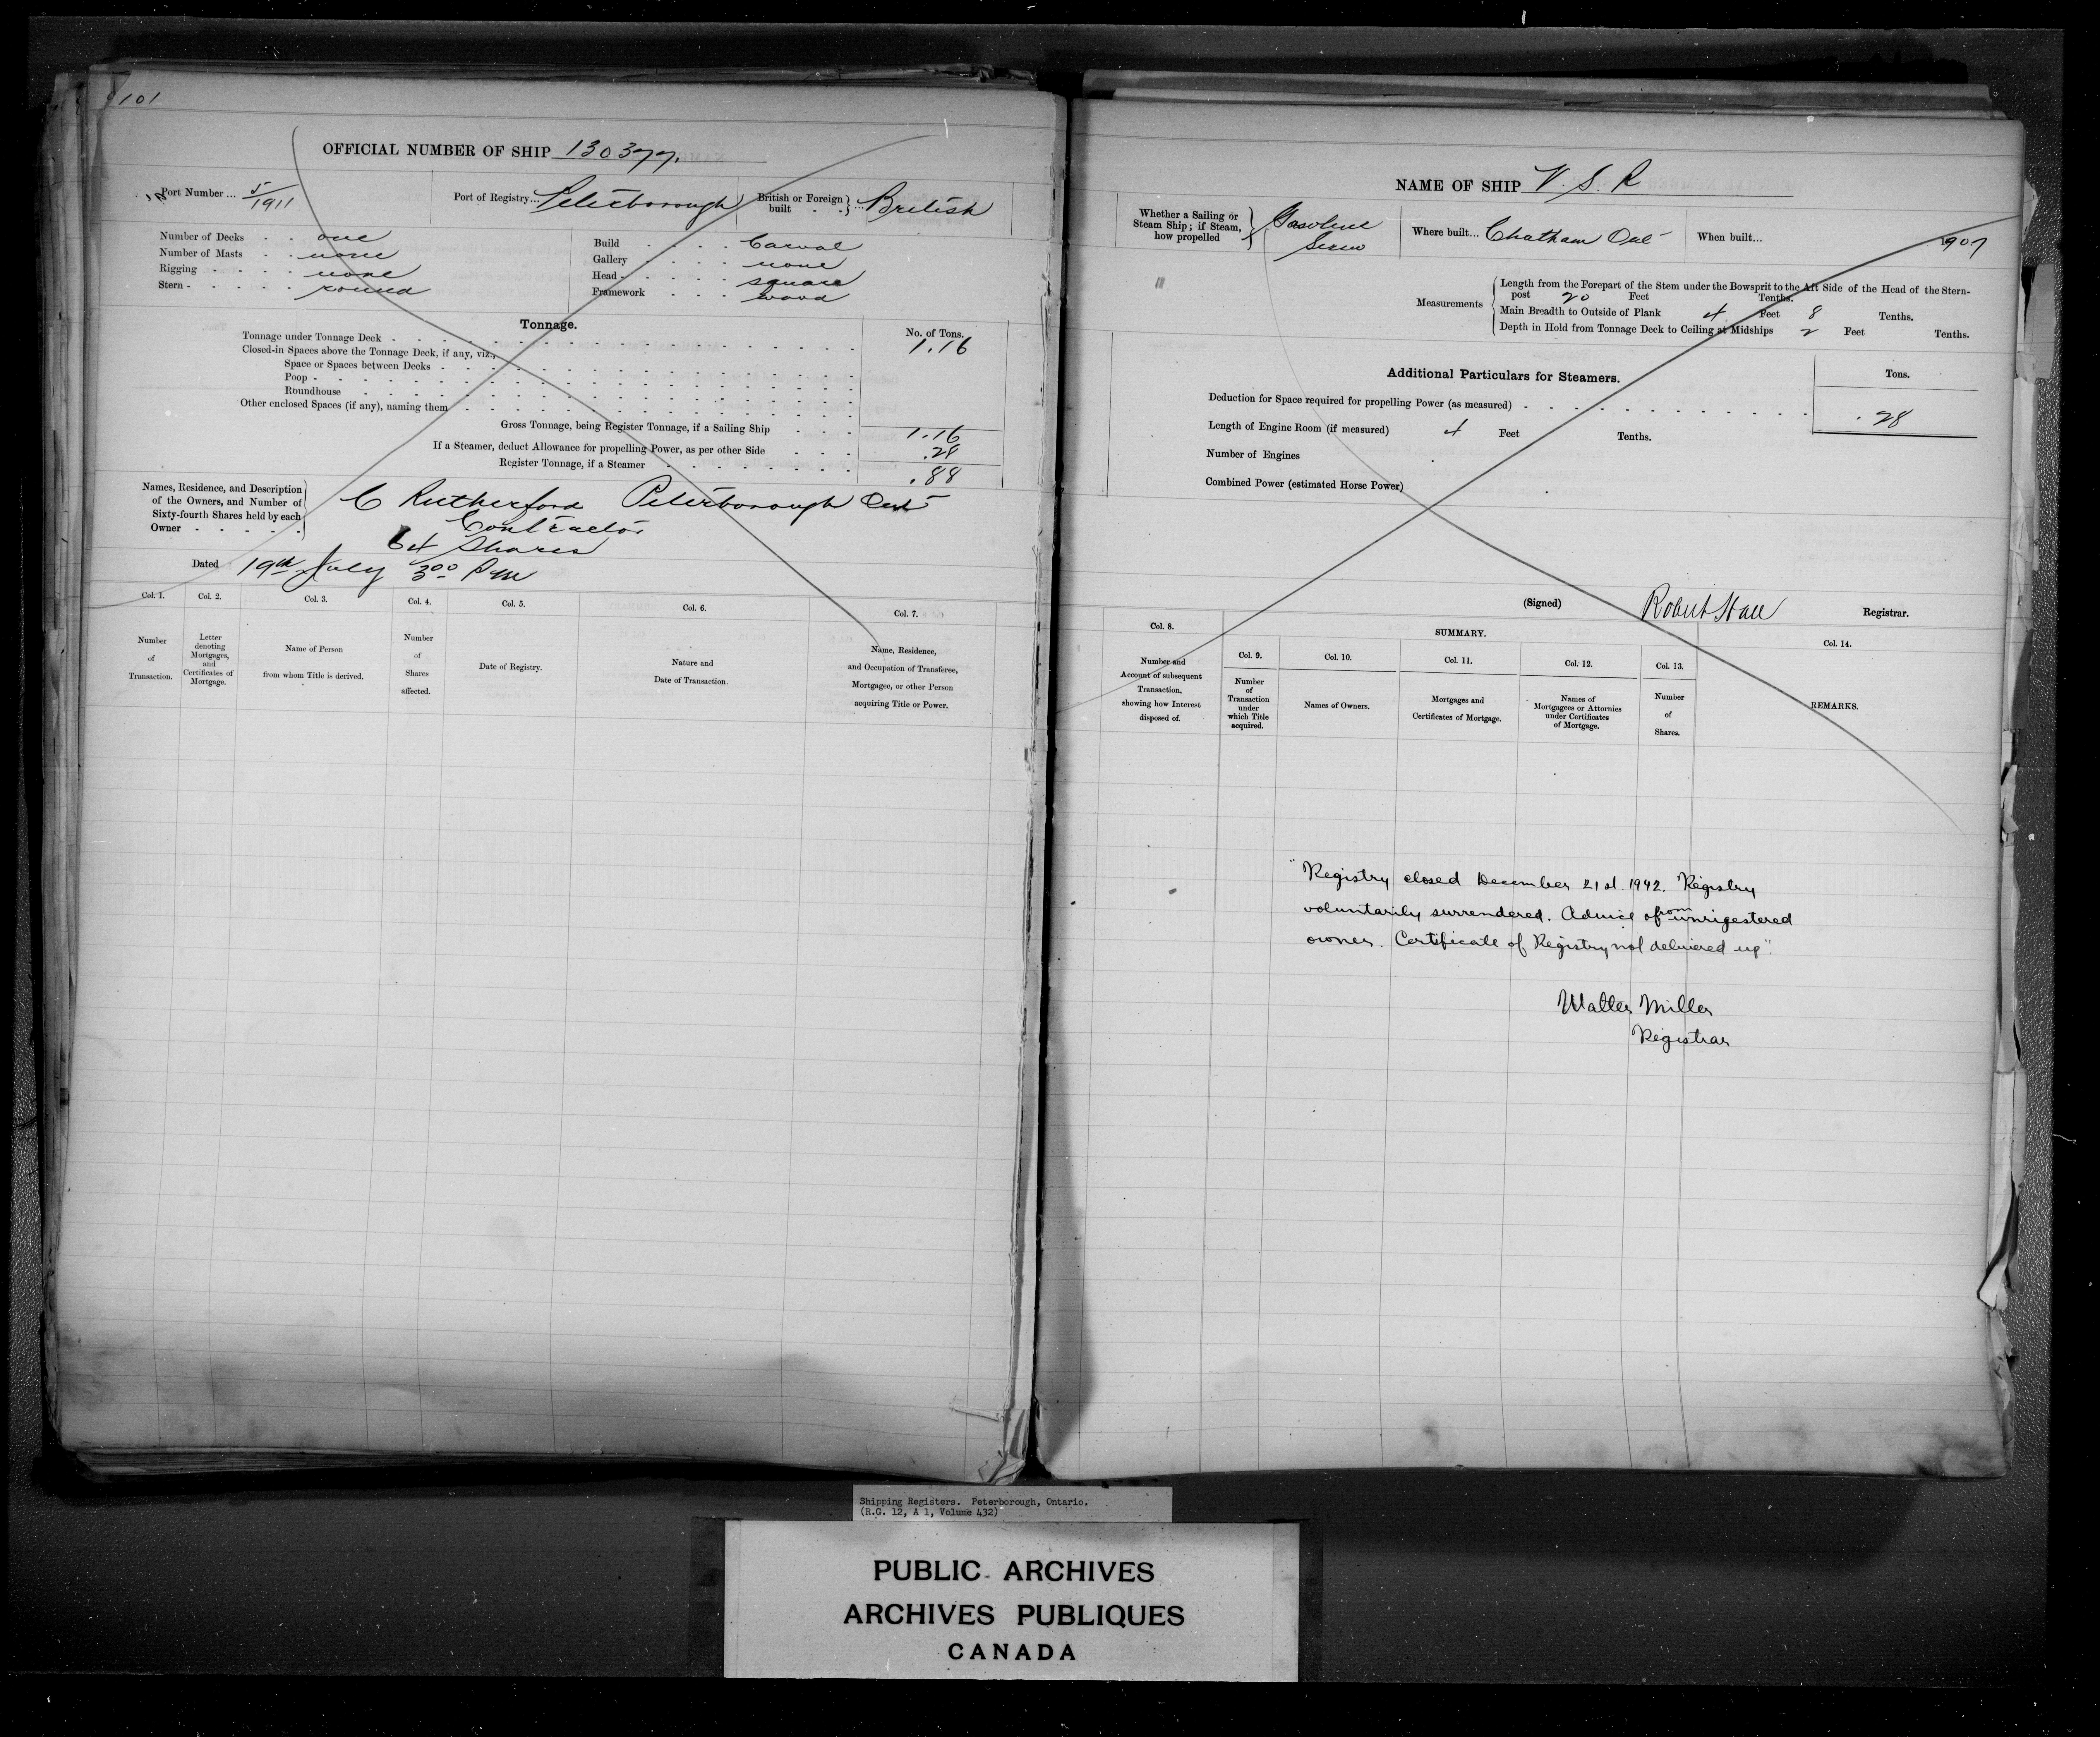 101
OFFICIAL NUMBER OF SHIP 130377.
Port Number ... 5/1911
Port of Registry ... Peterborough
British or Foreign built } ... British
Number of Decks . . one
Number of Masts . . none
Rigging . . . . none
Stern . . . . . round
Build . . . . Carval
Gallery . . . . none
Head . . . . . square
Framework . . . wood
Tonnage.
No. of Tons.
Tonnage under Tonnage Deck . . . 1.16
Closed-in Spaces above the Tonnage Deck, if any, viz.,
Space or Spaces between Decks
Poop
Roundhouse
Other enclosed Spaces (if any), naming them
Gross Tonnage, being Register Tonnage, if a Sailing Ship . . . 1.16
If a Steamer, deduct Allowance for propelling Power, as per other Side . . . .28
Register Tonnage, if a Steamer . . . .88
Names, Residence, and Description
of the Owners, and Number of
Sixty-fourth Shares held by each
Owner
C Rutherford Peterborough Ont
Contractor
64 Shares
Dated 19th July 3 00 P.M
Col. 1.
Number
of
Transaction.
Col. 2.
Letter
denoting
Mortgages,
and
Certificates of
Mortgage.
Col. 3.
Name of Person
from whom Title is derived.
Col. 4.
Number
of
Shares
affected.
Col. 5.
Date of Registry.
Col. 6.
Nature and
Date of Transaction.
Col. 7.
Name, Residence,
and Occupation of Transferee,
Mortgagee, or other Person
acquiring Title or Power.
NAME OF SHIP V. S. R
Whether a Sailing or
Steam Ship; if Steam,
how propelled
Gasoline
Screw
Where built... Chatham Ont
When built... 1907
Measurements
Length from the Forepart of the Stem under the Bowsprit to the Aft Side of the Head of the Stern-
post 20 Feet Tenths.
Main Breadth to Outside of Plank 4 Feet 8 Tenths.
Depth in Hold from Tonnage Deck to Ceiling at Midships 2 Feet Tenths.
Additional Particulars for Steamers.
Tons.
Deduction for Space required for propelling Power (as measured) . . . .28
Length of Engine Room (if measured) 4 Feet Tenths.
Number of Engines
Combined Power (estimated Horse Power)
(Signed) Robert Hall Registrar.
Col. 8.
Number and
Account of subsequent
Transaction,
showing how Interest
disposed of.
SUMMARY.
Col. 9.
Number
of
Transaction
under
which Title
acquired.
Col. 10.
Names of Owners.
Col. 11.
Mortgages and
Certificates of Mortgage.
Col. 12.
Names of
Mortgagees or Attornies
under Certificates
of Mortgage.
Col. 13.
Number
of
Shares.
Col. 14.
REMARKS.
"Registry closed December 21st. 1942. Registry
voluntarily surrendered. Advice of from unrigestered
owner. Certificate of Registry not delivered up".
Walter Miller
Registrar
Shipping Registers. Peterborough, Ontario.
(R.G. 12, A 1, Volume 432)
PUBLIC ARCHIVES
ARCHIVES PUBLIQUES
CANADA